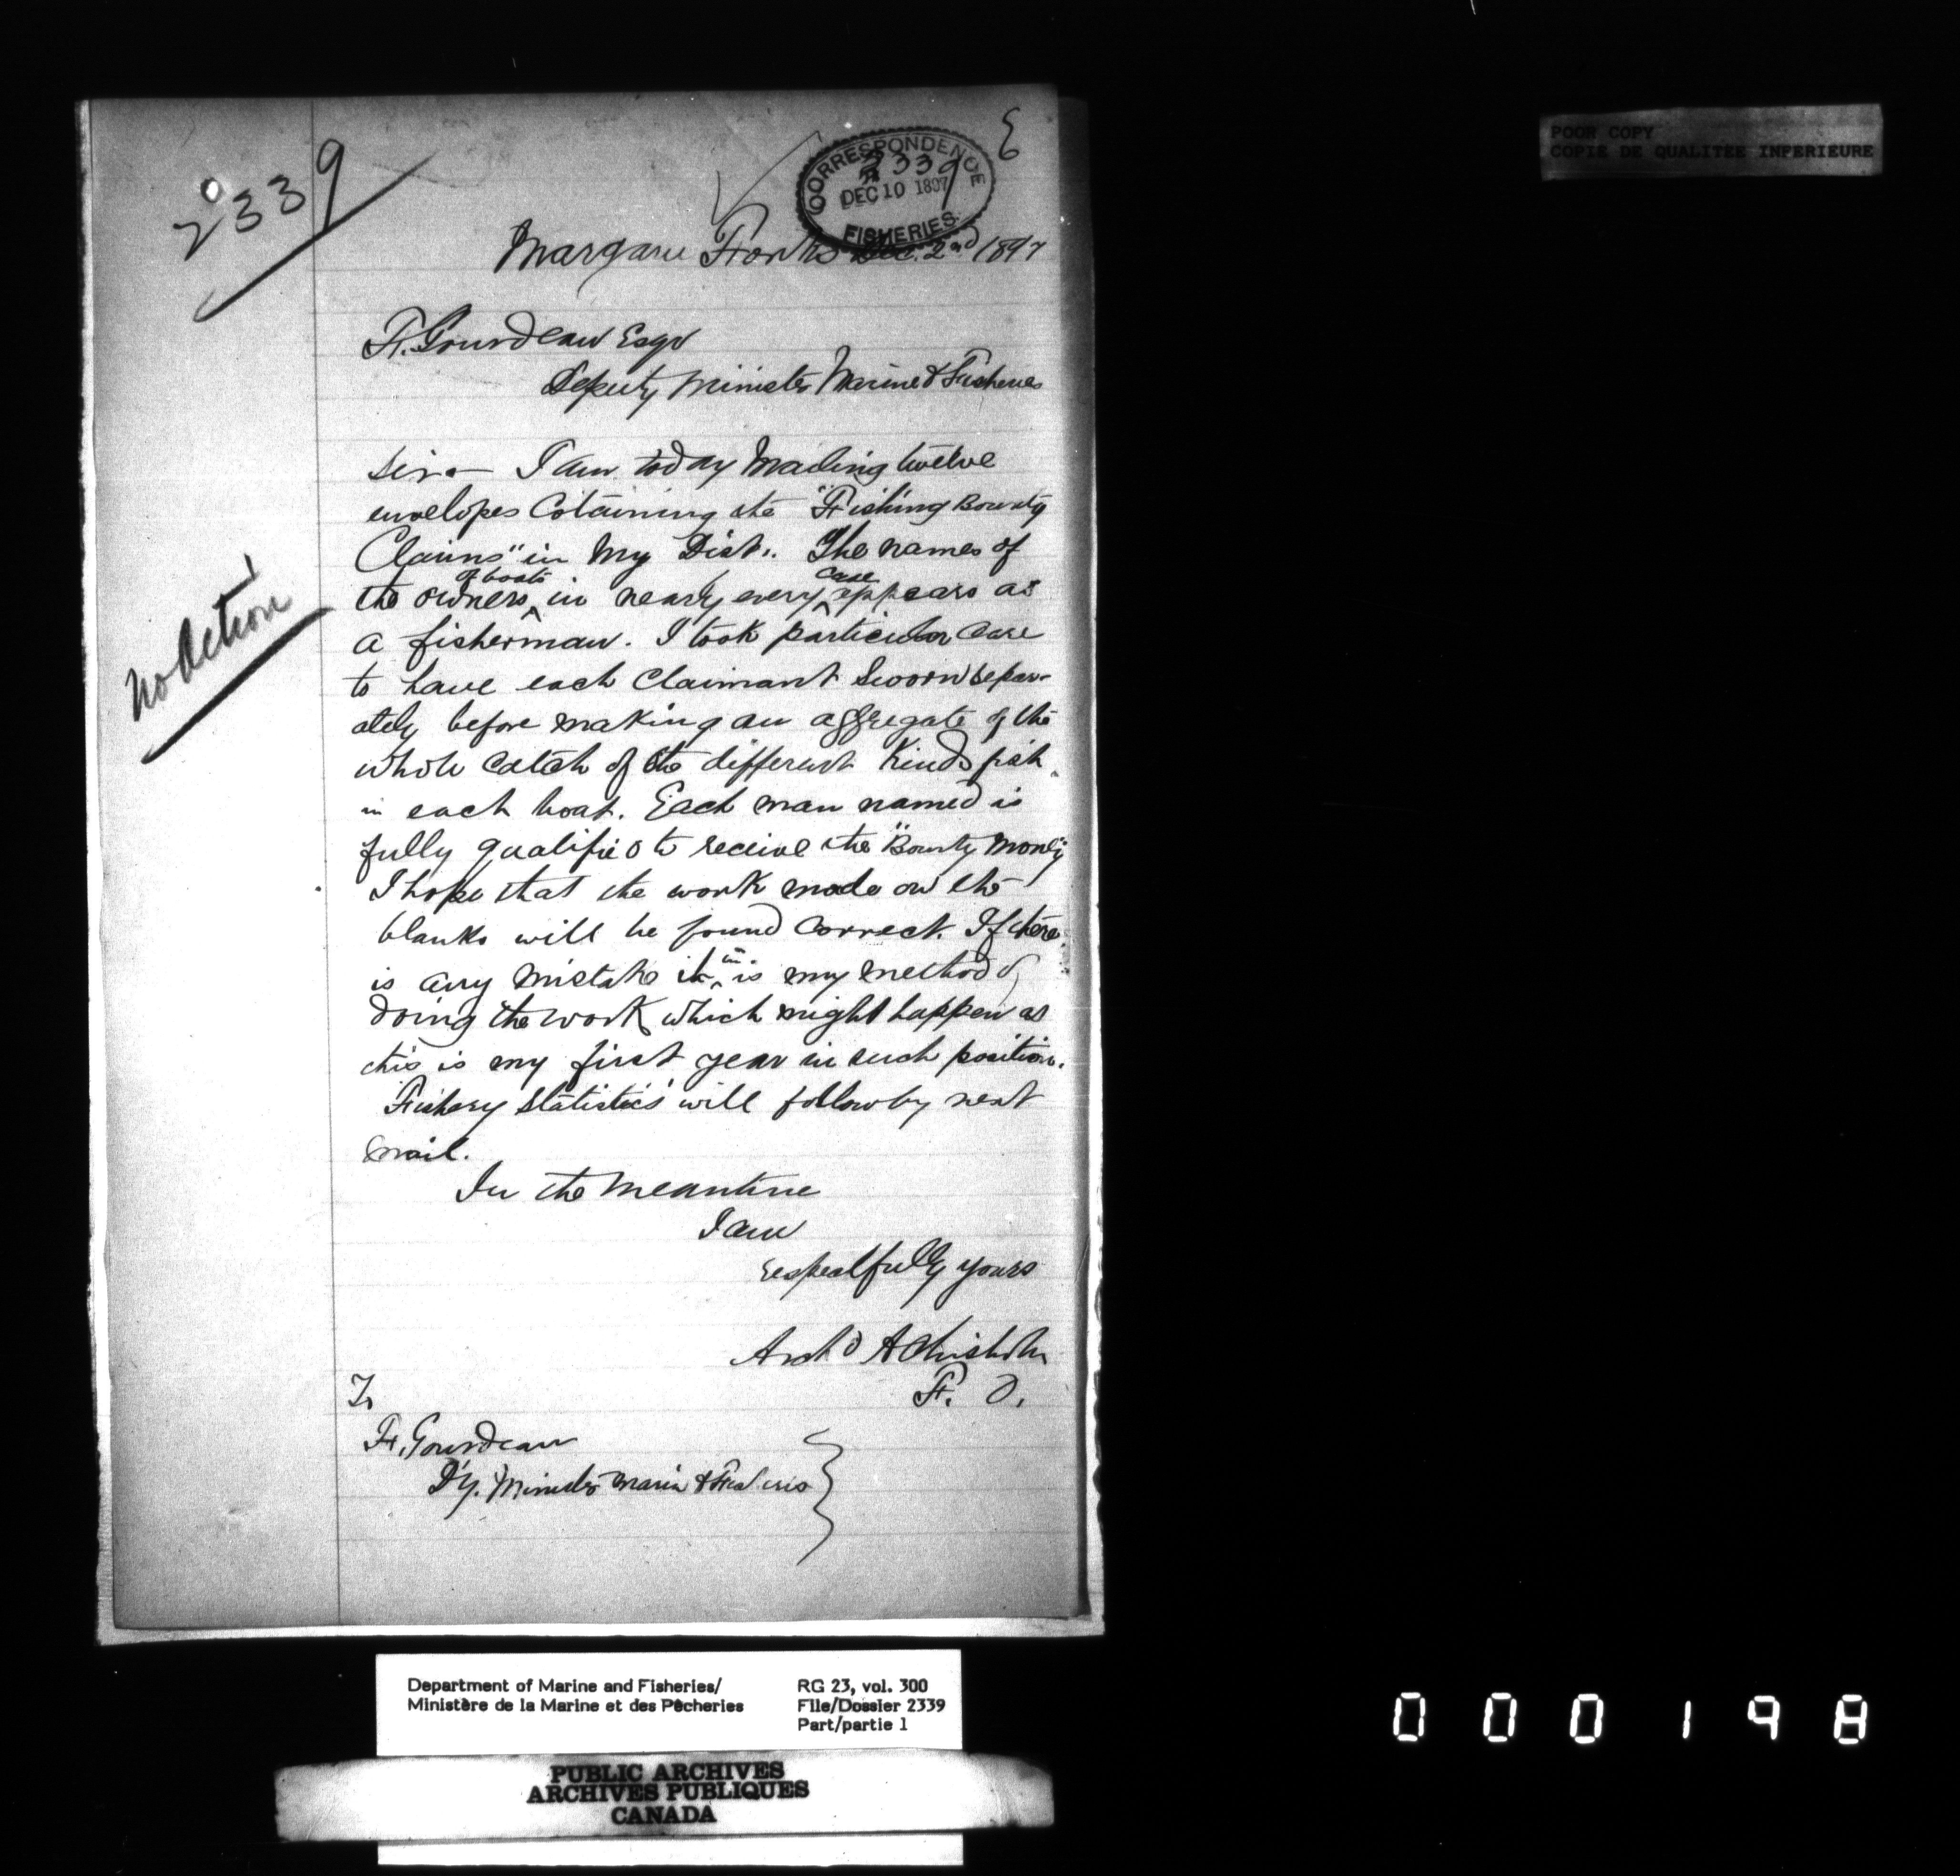 2339
E
CORRESPONDENCE
2339
DEC 10 1897
FISHERIES.
Margaree Forks Dec. 2nd 1897
F. Gourdeau Esqr
Deputy Minister Marine & Fisheries
Sir.— I am today mailing twelve
envelopes Cotaining the "Fishing Bounty
Claims" in my Dist.. The names of
the owners of boats in nearly every case appears as
a fisherman. I took particular care
to have each Claimant Sworn separ-
ately before making an aggregate of the
whole catch of the different Kinds fish
in each boat. Each man named is
fully qualified to receive the "Bounty Money"
I hope that the work made on the
blanks will be found correct. If there
is any mistake it in is my method of
doing the work which might happen as
this is my first year in such position.
Fishery Statistics will follow by next
mail.
In the meantine
I am
respealfully yours
Archd A Chisholm
F. O.
To
F. Gourdeau
Dy. Minister Marin & Fisheries
No Action
POOR COPY
COPIE DE QUALITEE INFERIEURE
Department of Marine and Fisheries/
Ministère de la Marine et des Pêcheries
RG 23, vol. 300
File/Dossier 2339
Part/partie 1
PUBLIC ARCHIVES
ARCHIVES PUBLIQUES
CANADA
000198